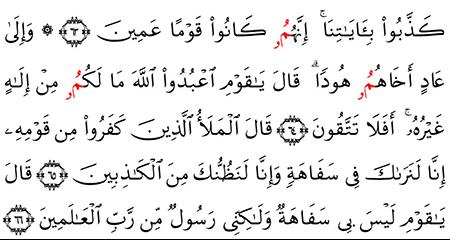 كَذَّبُوا۟ بِـَٔايَـٰتِنَآ ۚ إِنَّهُمُۥ كَانُوا۟ قَوْمًا عَمِينَ ٦٣ ۞ وَإِلَىٰ
عَادٍ أَخَاهُمُۥ هُودًا ۗ قَالَ يَـٰقَوْمِ ٱعْبُدُوا۟ ٱللَّهَ مَا لَكُمُۥ مِنْ إِلَـٰهٍ
غَيْرُهُۥٓ ۚ أَفَلَا تَتَّقُونَ ٦٤ قَالَ ٱلْمَلَأُ ٱلَّذِينَ كَفَرُوا۟ مِن قَوْمِهِۦٓ
إِنَّا لَنَرَىٰكَ فِى سَفَاهَةٍ وَإِنَّا لَنَظُنُّكَ مِنَ ٱلْكَـٰذِبِينَ ٦٥ قَالَ
يَـٰقَوْمِ لَيْسَ بِى سَفَاهَةٌ وَلَـٰكِنِّى رَسُولٌ مِّن رَّبِّ ٱلْعَـٰلَمِينَ ٦٦